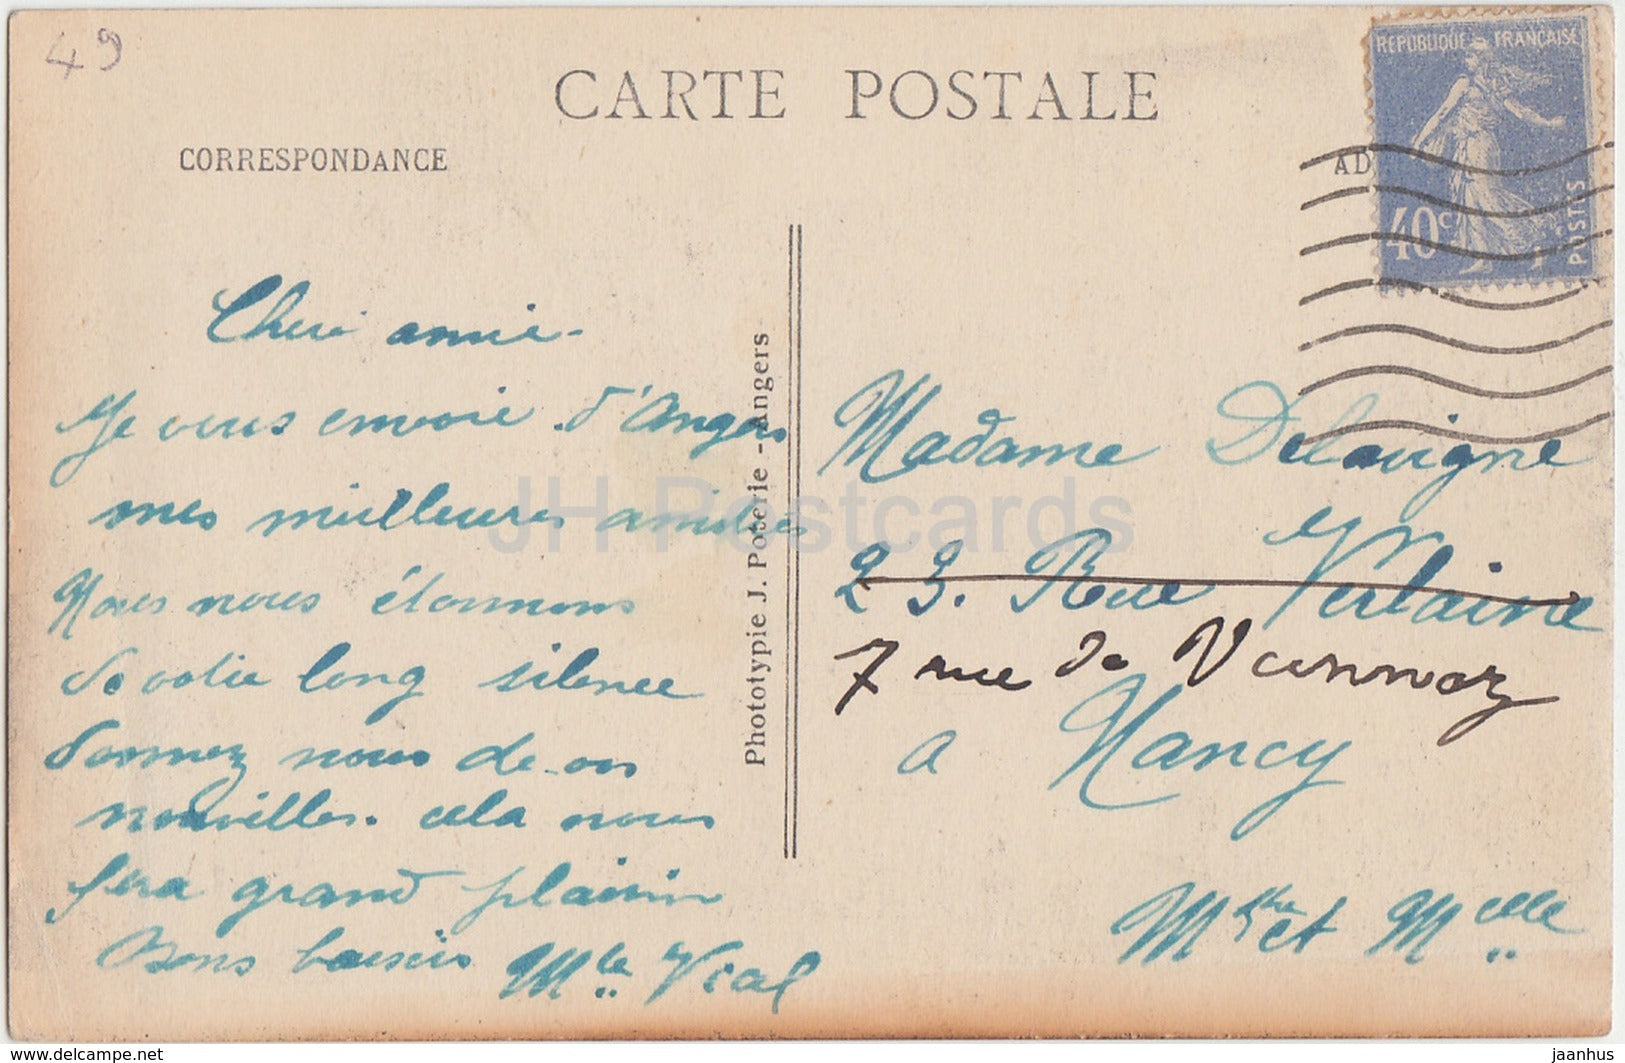 49
CARTE POSTALE
CORRESPONDANCE
AD
REPUBLIQUE FRANÇAISE
40c
POSTES
Cheri amie-
Je vous envoie d'Angers
mes meilleures amitiés
Nous nous étonnons
de votre long silence
donnez nous de vos
nouvelles. cela nous
fera grand plaisir
Bons baisers Mle Vial
Phototypie J. Poterie - Angers
Madame Delavigne
23. Rue Verlaine
7 rue de Vannoz
a Nancy
et Melle
JH Postcards
delcampe.net
jaanhus